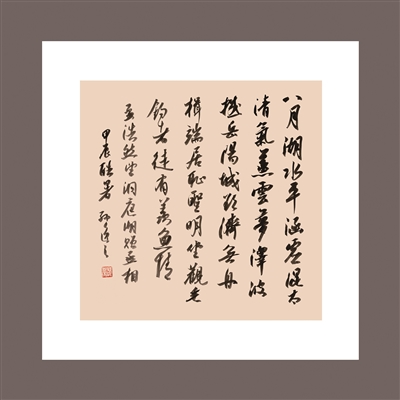 八月湖水平涵虛混太
清氣蒸雲夢澤波
撼岳陽城欲濟無舟
楫端居恥聖明坐觀垂
釣者徒有羨魚情
孟浩然望洞庭湖贈丞相
甲辰酷暑 孫